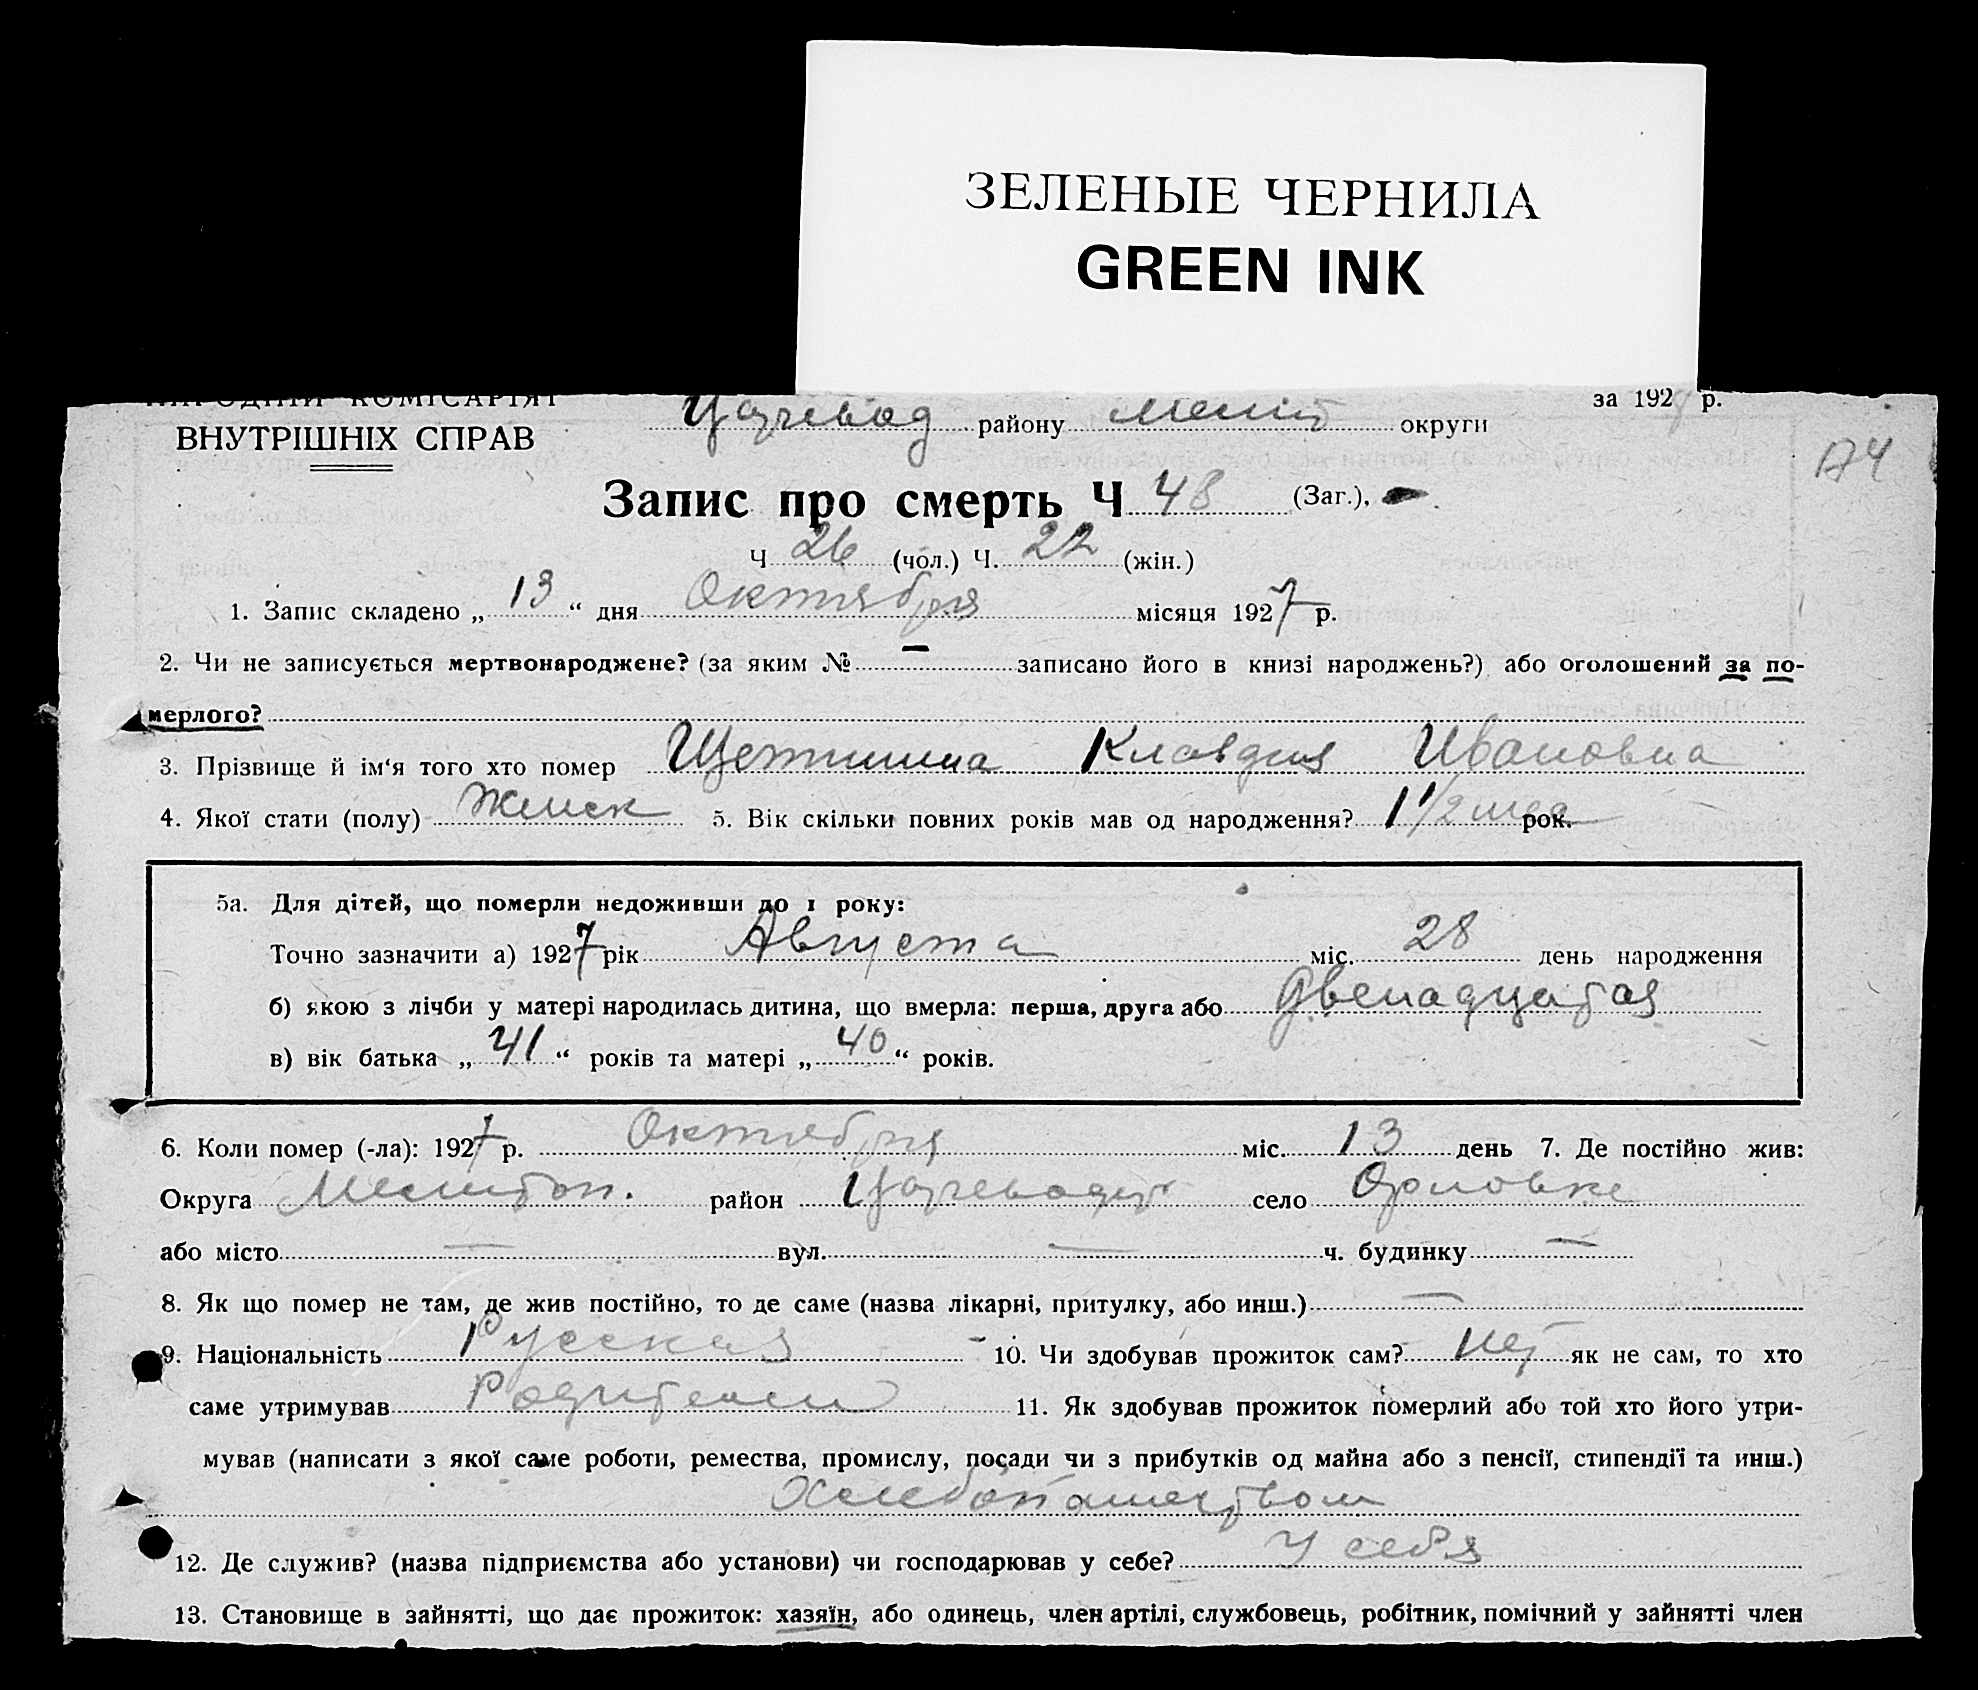 ЗЕЛЕНЫЕ ЧЕРНИЛА
GREEN INK
НАРОДНІЙ КОМІСАРІЯТ за 1927 р.
ВНУТРІШНІХ СПРАВ Царевод району Меліт округи
174
Запис про смерть Ч 48 (Заг.),
Ч 26 (чол.) Ч. 22 (жін.)
1. Запис складено „ 13 “ дня Октября місяця 1927 р.
2. Чи не записується мертвонароджене? (за яким № — записано його в книзі народжень?) або оголошений за по-
мерлого?
3. Прізвище й ім‘я того хто помер Щетинина Клавдия Ивановна
4. Якої стати (полу) Женск 5. Вік скільки повних років мав од народження? 1 1/2 мес рок.
5а. Для дітей, що померли недоживши до 1 року:
Точно зазначити а) 1927 рік Августа міс. 28 день народження
б) якою з лічби у матері народилась дитина, що вмерла: перша, друга або двенадцатая
в) вік батька „ 41 “ років та матері „ 40 “ років.
6. Коли помер (-ла): 1927 р. Октября міс. 13 день 7. Де постійно жив:
Округа Мелитоп. район Цареводар село Орловке
або місто — вул. — ч. будинку —
8. Як що помер не там, де жив постійно, то де саме (назва лікарні, притулку, або инш.) —
9. Національність Русская 10. Чи здобував прожиток сам? нет як не сам, то хто
саме утримував Родители 11. Як здобував прожиток померлий або той хто його утри-
мував (написати з якої саме роботи, ремества, промислу, посади чи з прибутків од майна або з пенсії, стипендії та инш.)
Хлебопашеством
12. Де служив? (назва підприємства або установи) чи господарював у себе? У себя
13. Становище в зайнятті, що дає прожиток: хазяїн, або одинець, член артілі, службовець, робітник, помічний у зайнятті член